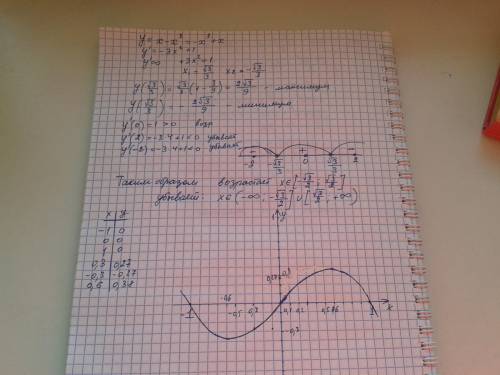 y = x - x³ = -x³ + x
y' = -3x² + 1
y'∞ +3x² = 1
x₁ = √3/3 x₂ = -√3/3
y(√3/3) = √3/3 (1 - 3/9) = 2√3/9 - максимум
y(√3/3) = - 2√3/9 - минимум
y'(0) = 1 > 0 возр
y'(2) = -3·4+1 < 0 убывает
y'(-2) = -3·4+1 < 0 убывает
- + -
-2 -√3/3 0 √3/3 2
Таким образом возрастает x∈[-√3/3; √3/3]
убывает x∈(-∞; -√3/3] ∪ [√3/3; +∞)
x y
-1 0
0 0
1 0
0,3 0,27
-0,3 -0,27
0,6 0,38
y
-1 -0,6 -0,5 0,1 0,2 1 x